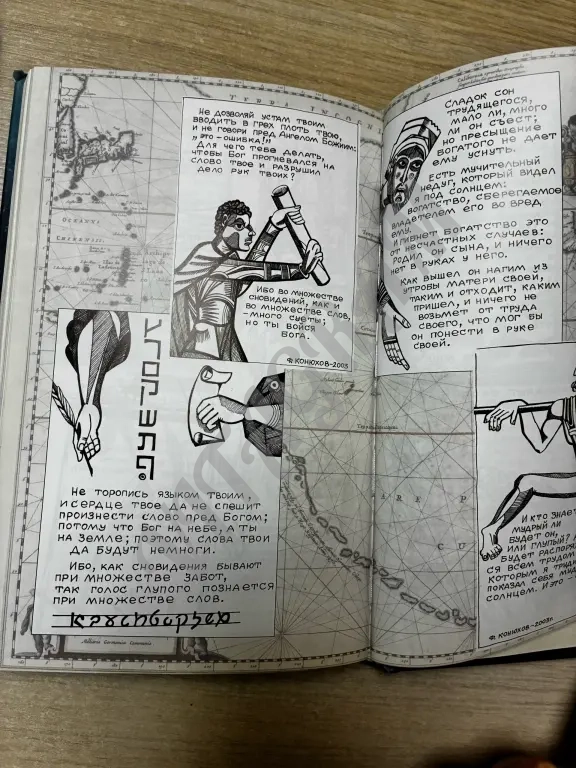 Не дозволяй устам твоим
вводить в грех плоть твою,
и не говори пред Ангелом Божиим:
"это – ошибка!"
Для чего тебе делать,
чтобы Бог прогневался на
слово твое и разрушил
дело рук твоих?
Ибо во множестве
сновидений, как и
во множестве слов,
– много суеты;
но ты бойся
Бога.
Ф. КОНЮХОВ-2003
Не торопись языком твоим,
и сердце твое да не спешит
произнести слово пред Богом;
потому что Бог на небе, а ты
на земле; поэтому слова твои
да будут немноги.
Ибо, как сновидения бывают
при множестве забот,
так голос глупого познается
при множестве слов.
Сладок сон
трудящегося,
мало ли, много
ли он съест;
но пресыщение
богатого не дает
ему уснуть.
Есть мучительный
недуг, который видел
я под солнцем:
богатство, сберегаемое
владетелем его во вред
ему.
И гибнет богатство это
от несчастных случаев:
родил он сына, и ничего
нет в руках у него.
Как вышел он нагим из
утробы матери своей,
таким и отходит, каким
пришел, и ничего не
возьмет от труда
своего, что мог бы
он понести в руке
своей.
И кто знает
мудрый ли
будет он,
или глупый?
будет распоря
ся всем трудом
которым я труди
показал себя муд
солнцем. И это –
Ф. КОНЮХОВ-2003г.
TERRA INCOGNI
OCEANUS
CHINENSIS
MARE P
CU